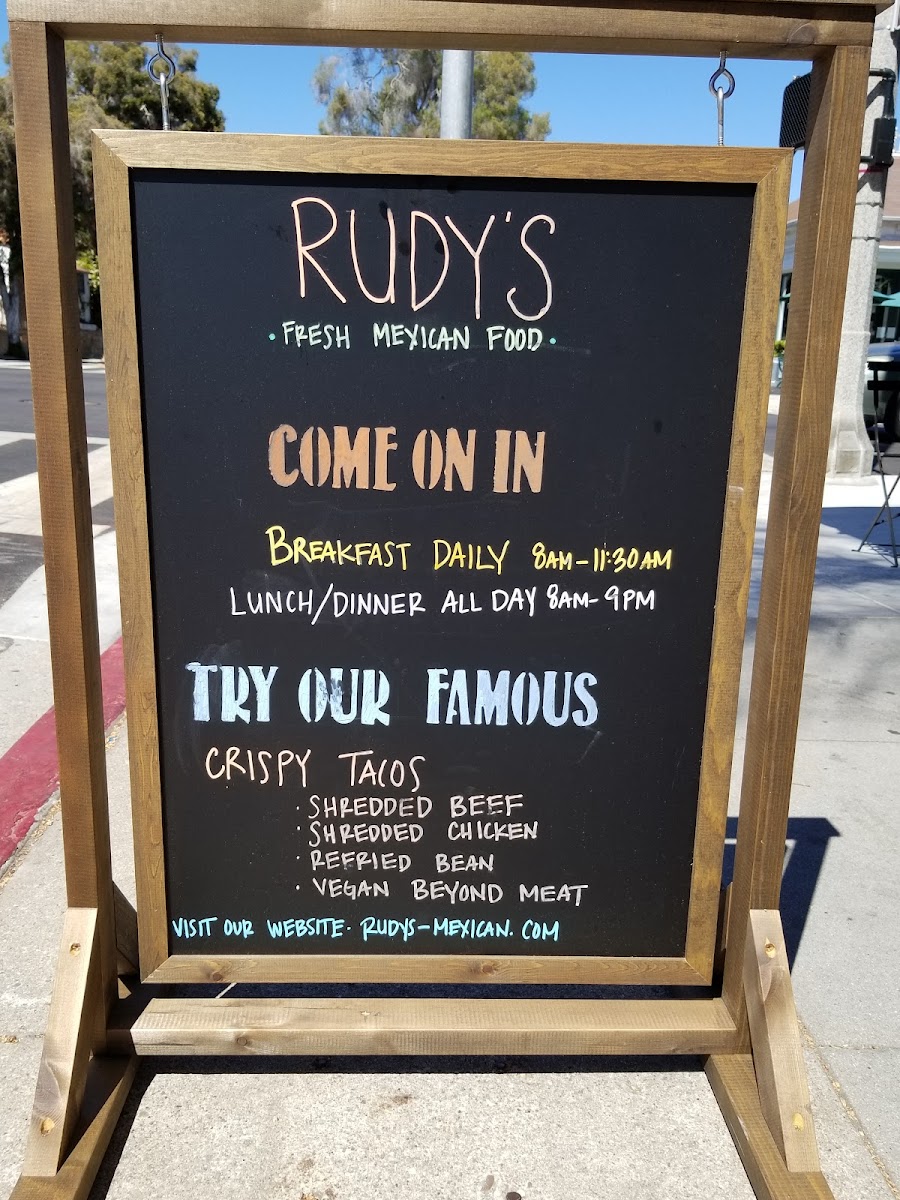 RUDY'S
· FRESH MEXICAN FOOD ·
COME ON IN
BREAKFAST DAILY 8AM-11:30AM
LUNCH/DINNER ALL DAY 8AM-9PM
TRY OUR FAMOUS
CRISPY TACOS
· SHREDDED BEEF
· SHREDDED CHICKEN
· REFRIED BEAN
· VEGAN BEYOND MEAT
VISIT OUR WEBSITE· RUDYS-MEXICAN.COM